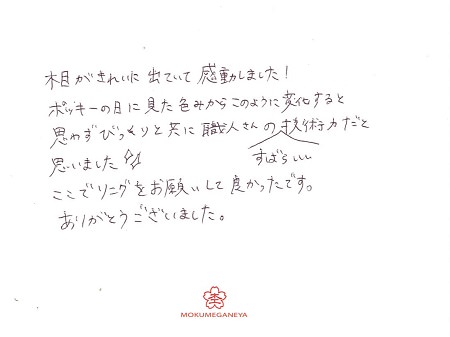 木目がきれいに出ていて感動しました!
ポッキーの日に見た色みからこのように変化すると
思わずびっくりと共に職人さんの技術力だと
すばらしい
思いました
ここでリングをお願いして良かったです。
ありがとうございました。
MOKUMEGANEYA